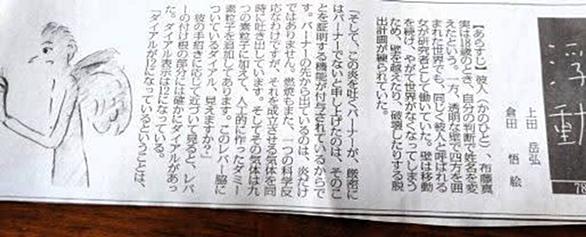 浮動
上田 岳弘
倉田 悟 絵
【あらすじ】彼人(かのひと)、布藤真
実は18歳のとき、自分の判断で姓名を変
えたという。一方、透明な壁で四方を囲
まれた世界でも、同じく彼人と呼ばれる
女が研究者として働いていた。壁は移動
を続け、やがて世界がなくなってしまう
ため、壁を越えたり、破壊したりする脱
出計画が練られていた。
「そして、この炎を吐くバーナーが、厳密に
はバーナーでないと申し上げたのは、そのこ
とを証明する機能が付与されているからで
す。バーナーの先から出ているのは、炎だけ
ではありません。燃焼もまた、一つの科学反
応なわけですが、それを成立させる気体を同
時に吐き出しています。そしてその気体は九
つの素粒子に加えて、人工的に作ったダミー
素粒子を追加してあります。このレバー脇に
ついているダイアル、見えますか?」
彼の手招きに応じて近づいて見ると、レバ
ーの付け根の部分には確かにダイアルがあっ
た。ダイアル表示は12になっている。
「ダイアルが12になっているということは、